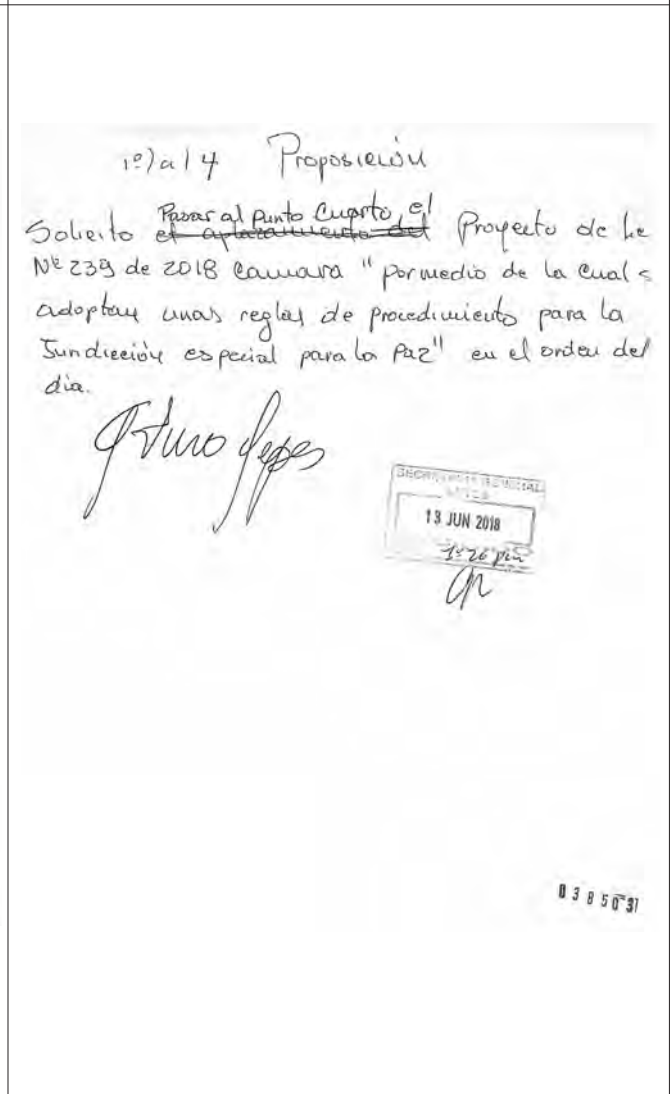 1º) al 4 Proposición
Pasar al punto Cuarto, el
Solicito el aplazamiento del Proyecto de Le
Nº 239 de 2018 Camara "por medio de la Cual s
adoptan unas reglas de procedimiento para la
Juridicción especial para la Paz" en el orden del
día.
Arturo Yepes
SECRETARIA GENERAL
13 JUN 2018
1:26 pm
0385031